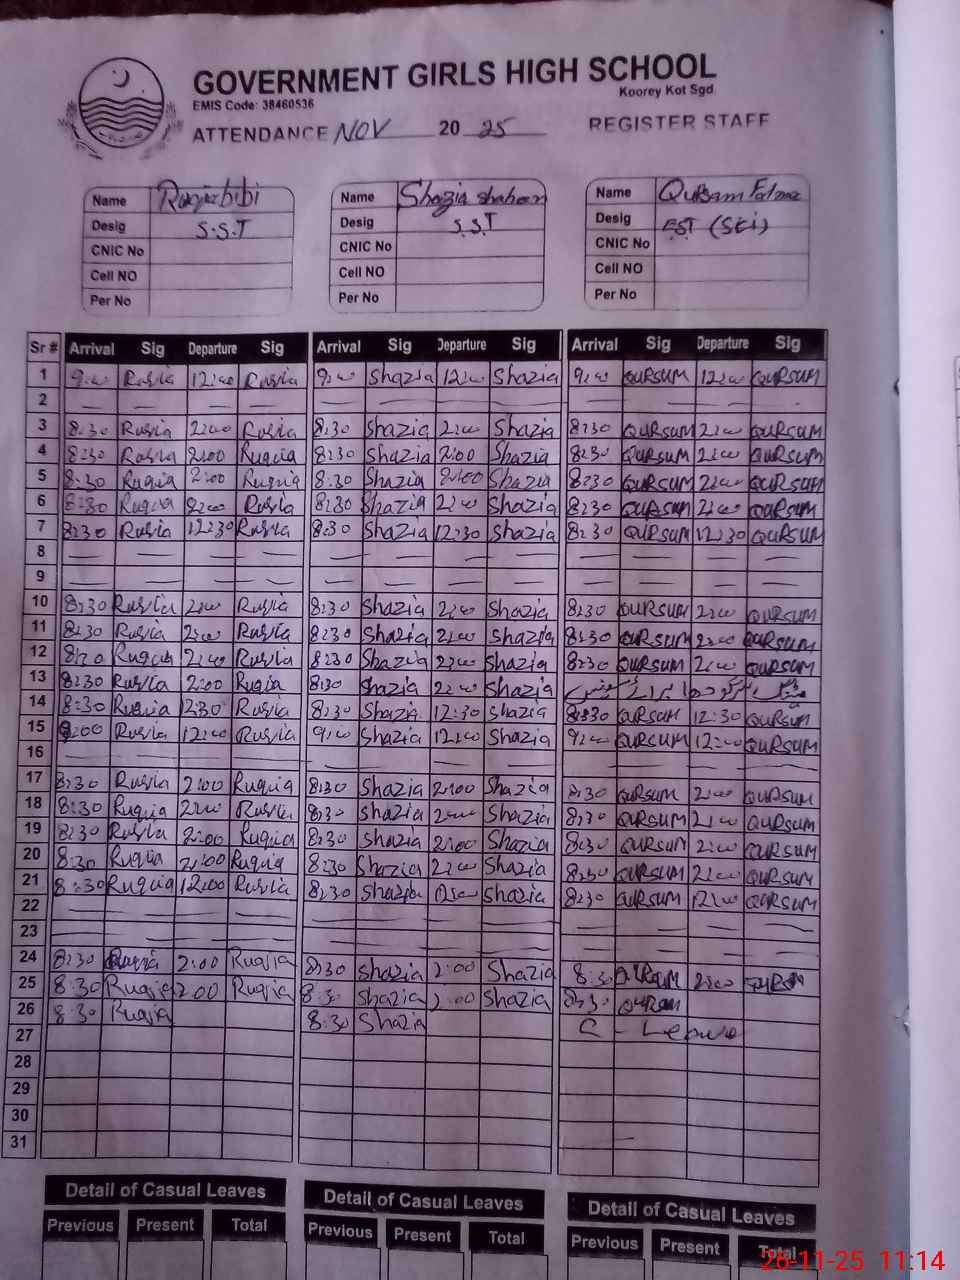 GOVERNMENT GIRLS HIGH SCHOOL
Koorey Kot Sgd
EMIS Code: 38460536
ATTENDANCE NOV 20 25 REGISTER STAFF
Name Ruqia bibi Name Shazia shaheen Name Qursam Fatma
Desig S.S.T Desig S.S.T Desig EST (Sci)
CNIC No CNIC No CNIC No
Cell NO Cell NO Cell NO
Per No Per No Per No
Sr # Arrival Sig Departure Sig Arrival Sig Departure Sig Arrival Sig Departure Sig
1 9:00 Ruqia 12:00 Ruqia 9:00 Shazia 12:00 Shazia 9:00 QURSUM 12:00 QURSUM
2 — — — — — — — — — — — —
3 8:30 Ruqia 2:00 Ruqia 8:30 Shazia 2:00 Shazia 8:30 QURSUM 2:00 QURSUM
4 8:30 Ruqia 2:00 Ruquia 8:30 Shazia 2:00 Shazia 8:30 QURSUM 2:00 QURSUM
5 8:30 Ruquia 2:00 Ruquia 8:30 Shazia 2:00 Shazia 8:30 QURSUM 2:00 QURSUM
6 8:30 Ruquia 2:00 Ruqia 8:30 Shazia 2:00 Shazia 8:30 QURSUM 2:00 QURSUM
7 8:30 Ruqia 12:30 Ruqia 8:30 Shazia 12:30 Shazia 8:30 QURSUM 12:30 QURSUM
8 — — — — — — — — — — — —
9 — — — — — — — — — — — —
10 8:30 Ruqia 2:00 Ruqia 8:30 Shazia 2:00 Shazia 8:30 QURSUM 2:00 QURSUM
11 8:30 Ruqia 2:00 Ruqia 8:30 Shazia 2:00 Shazia 8:30 QURSUM 2:00 QURSUM
12 8:30 Ruquia 2:00 Ruqia 8:30 Shazia 2:00 Shazia 8:30 QURSUM 2:00 QURSUM
13 8:30 Ruqia 2:00 Ruquia 8:30 Shazia 2:00 Shazia سرگودھا برائے
14 8:30 Ruquia 12:30 Ruqia 8:30 Shazia 12:30 Shazia 8:30 QURSUM 12:30 QURSUM
15 9:00 Ruqia 12:00 Ruqia 9:00 Shazia 12:00 Shazia 9:00 QURSUM 12:00 QURSUM
16 — — — — — — — — — — — —
17 8:30 Ruqia 2:00 Ruquia 8:30 Shazia 2:00 Shazia 8:30 QURSUM 2:00 QURSUM
18 8:30 Ruquia 2:00 Ruqia 8:30 Shazia 2:00 Shazia 8:30 QURSUM 2:00 QURSUM
19 8:30 Ruqia 2:00 Ruquia 8:30 Shazia 2:00 Shazia 8:30 QURSUM 2:00 QURSUM
20 8:30 Ruquia 2:00 Ruquia 8:30 Shazia 2:00 Shazia 8:30 QURSUM 2:00 QURSUM
21 8:30 Ruquia 12:00 Ruqia 8:30 Shazia 12:00 Shazia 8:30 QURSUM 12:00 QURSUM
22 — — — — — — — — — — — —
23 — — — — — — — — — — — —
24 8:30 Ruqia 2:00 Ruqia 8:30 Shazia 2:00 Shazia 8:30 QURSUM 2:00 QURSUM
25 8:30 Ruqia 2:00 Ruqia 8:30 Shazia 2:00 Shazia 8:30 QURSUM
26 8:30 Ruqia 8:30 Shazia C - Leave
27
28
29
30
31
Detail of Casual Leaves Detail of Casual Leaves Detail of Casual Leaves
Previous Present Total Previous Present Total Previous Present Total
26-11-25 11:14